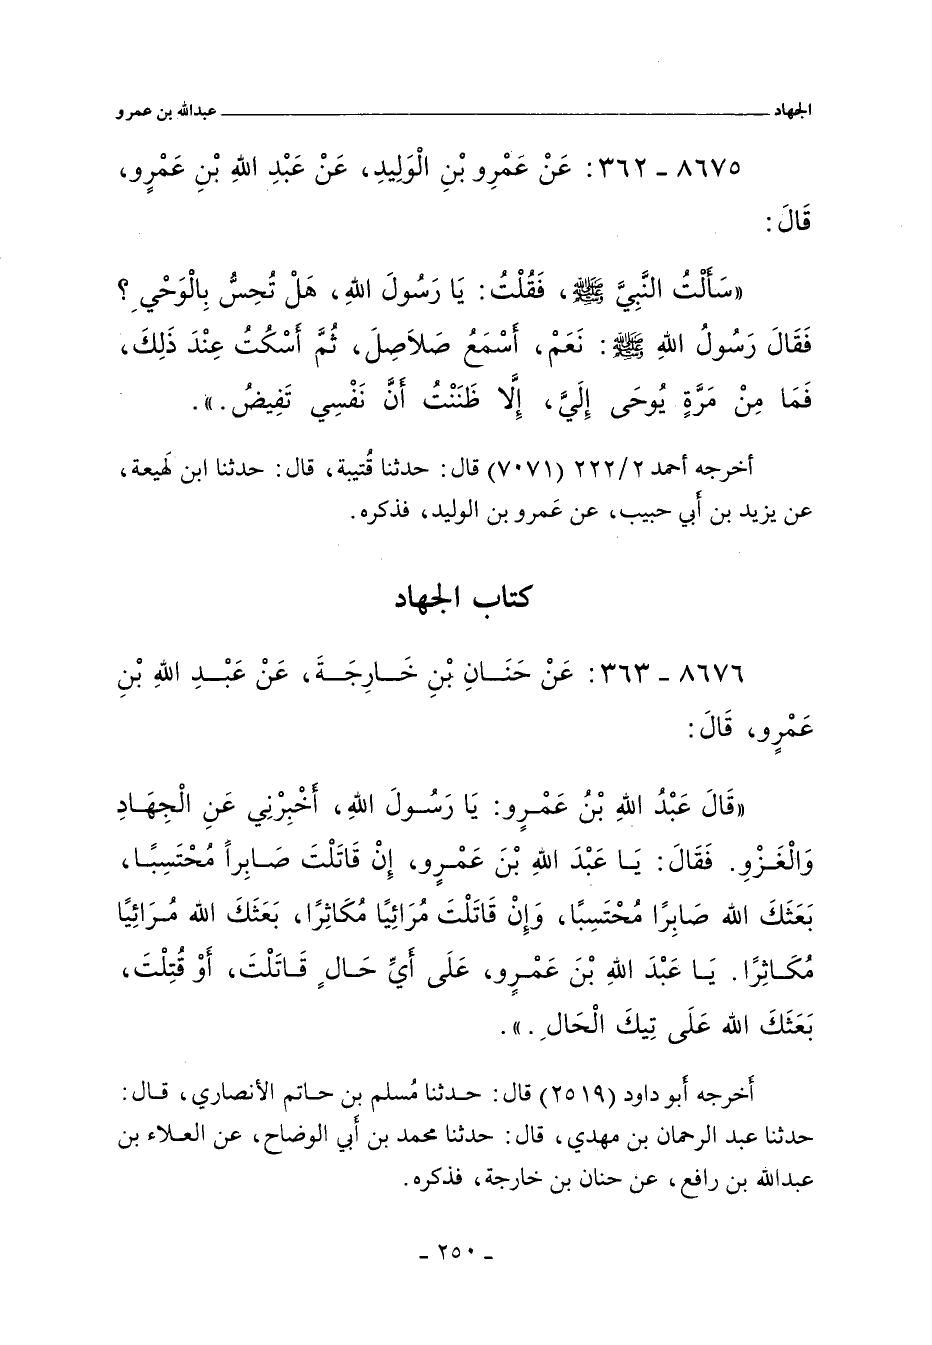 الجهاد ــــــــــــــــــــ عبدالله بن عمرو
٨٦٧٥ ـ ٣٦٢: عَنْ عَمْرِو بْنِ الْوَلِيدِ، عَنْ عَبْدِ اللهِ بْنِ عَمْرٍو،
قَالَ:
«سَأَلْتُ النَّبِيَّ ﷺ، فَقُلْتُ: يَا رَسُولَ اللهِ، هَلْ تُحِسُّ بِالْوَحْيِ؟
فَقَالَ رَسُولُ اللهِ ﷺ: نَعَمْ، أَسْمَعُ صَلاَصِلَ، ثُمَّ أَسْكُتُ عِنْدَ ذَلِكَ،
فَمَا مِنْ مَرَّةٍ يُوحَى إِلَيَّ، إِلَّا ظَنَنْتُ أَنَّ نَفْسِي تَفِيضُ.».
أخرجه أحمد ٢/ ٢٢٢ (٧٠٧١) قال: حدثنا قُتيبة، قال: حدثنا ابن لهَيعة،
عن يزيد بن أَبي حبيب، عن عَمرو بن الوليد، فذكره.
كتاب الجهاد
٨٦٧٦ ـ ٣٦٣: عَنْ حَنَـانِ بْنِ خَـارِجَـةَ، عَنْ عَبْـدِ اللهِ بْنِ
عَمْرٍو، قَالَ:
«قَالَ عَبْدُ اللهِ بْنُ عَمْـرٍو: يَا رَسُـولَ اللهِ، أَخْبِرْنِي عَنِ الْجِهَـادِ
وَالْغَـزْوِ. فَقَالَ: يَـا عَبْدَ اللهِ بْنَ عَمْـرٍو، إِنْ قَاتَلْتَ صَـابِراً مُحْتَسِبًـا،
بَعَثَكَ الله صَابِرًا مُحْتَسِبًا، وَإِنْ قَاتَلْتَ مُرَائِيًا مُكَاثِرًا، بَعَثَكَ الله مُـرَائِيًا
مُكَـاثِرًا. يَـا عَبْدَ اللهِ بْنَ عَمْـرٍو، عَلَى أَيِّ حَـالٍ قَـاتَلْتَ، أَوْ قُتِلْتَ،
بَعَثَكَ الله عَلَى تِيكَ الْحَالِ.».
أَخرجه أَبو داود (٢٥١٩) قال: حـدثنا مُسلم بن حـاتم الأنصاري، قـال:
حدثنا عبد الرحمان بن مهدي، قال: حدثنا محمد بن أَبي الوضاح، عن العـلاء بن
عبدالله بن رافع، عن حنان بن خارجة، فذكره.
ـ ٢٥٠ ـ